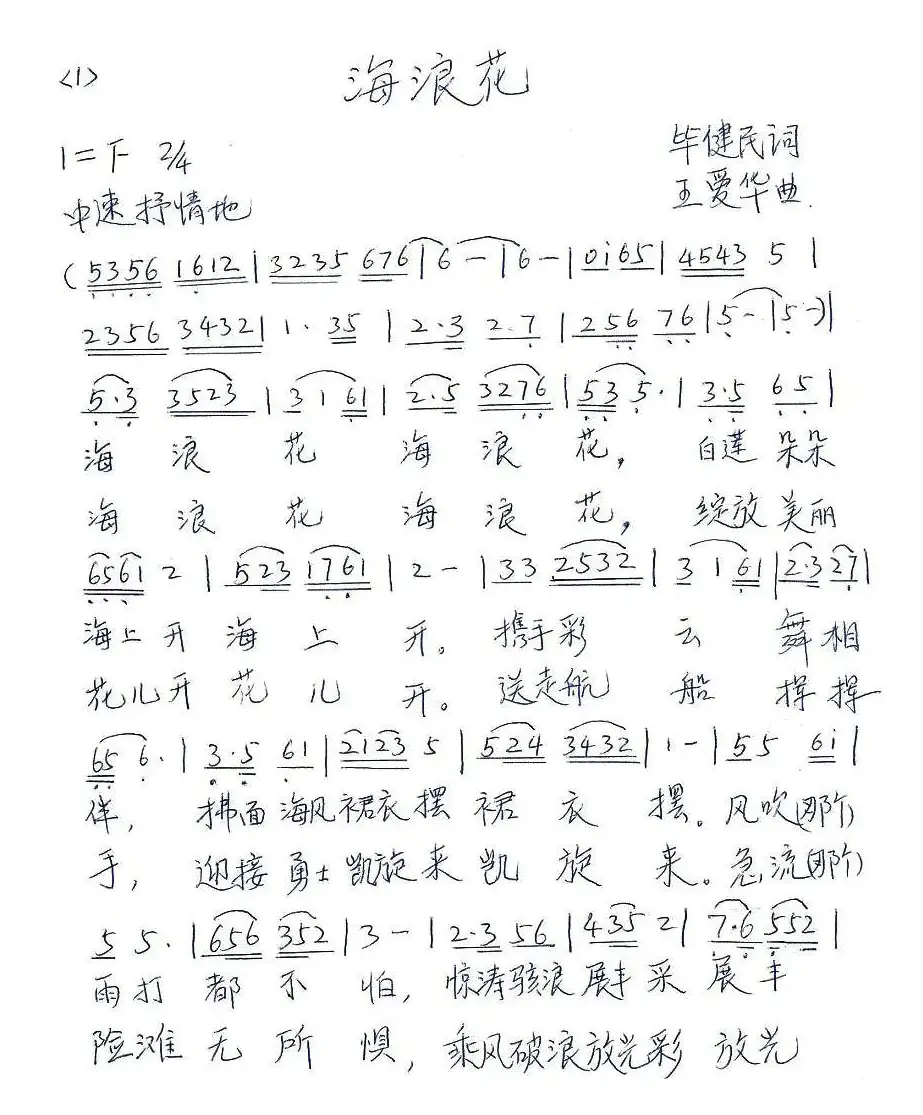 <1> 海浪花
1=F 2/4 毕健民词
中速 抒情地 王爱华曲.
(5356 1612|3235 676|6-|6-|0i65|4543 5|
2356 3432|1· 35|2·3 2·7|256 76|5-|5-)|
5·3 3523|3 1 61|2·5 3276|53 5·|3·5 65|
海 浪 花 海 浪 花, 白莲朵朵
海 浪 花 海 浪 花, 绽放美丽
6561 2|523 1761|2-|33 2532|3 1 61|2·3 27|
海上开海上 开。携手彩 云 舞相
花儿开花儿 开。送走航 船 挥挥
65 6·|3·5 61|2123 5|524 3432|1-|55 6i|
伴, 拂面海风裙衣摆 裙 衣 摆。风吹(那个)
手, 迎接勇士凯旋来凯 旋 来。急流(那个)
5 5·|656 352|3-|2·3 56|435 2|7·6 552|
雨打 都 不 怕, 惊涛骇浪展丰采 展 丰
险滩 无 所 惧, 乘风破浪放光彩 放光